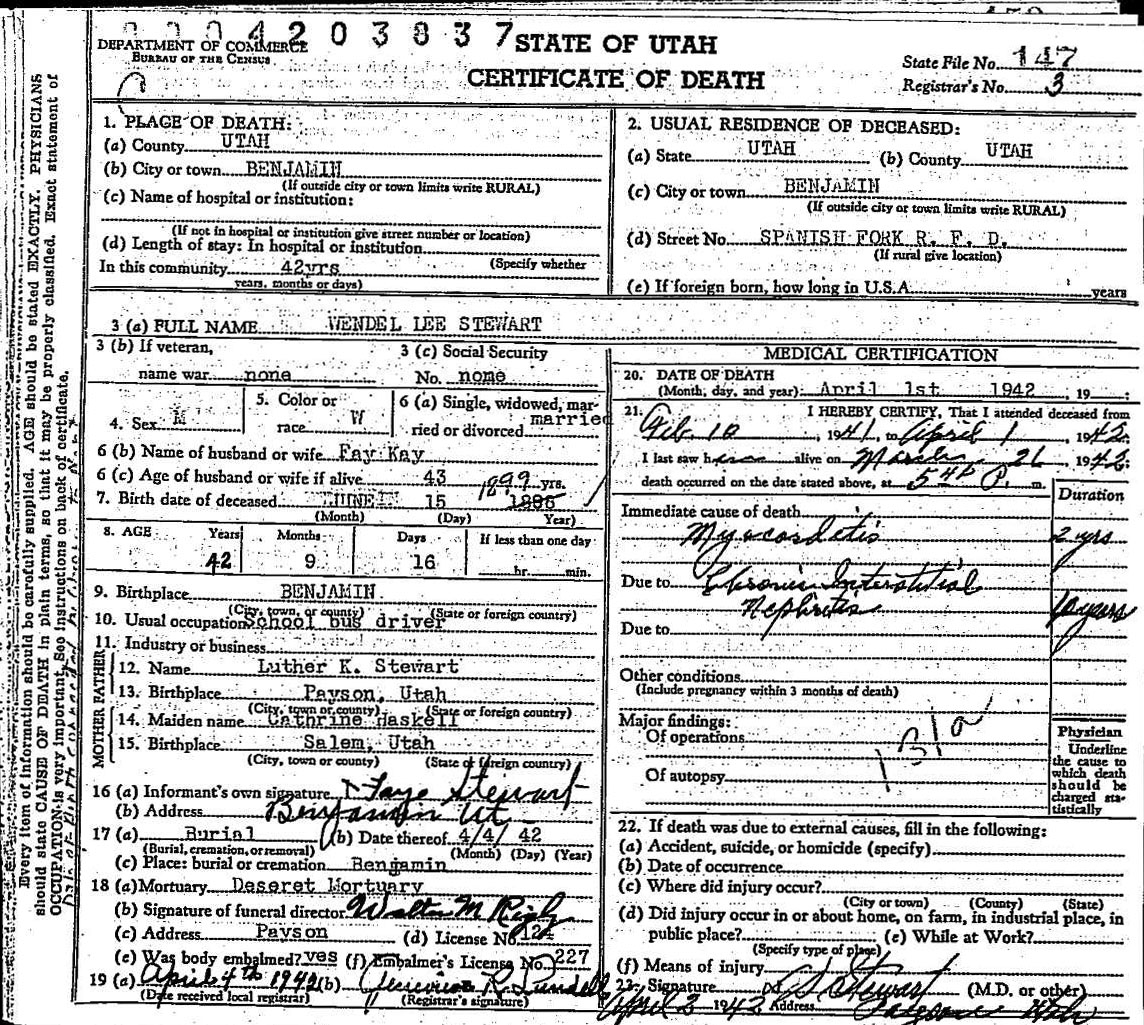 0004203837
STATE OF UTAH
DEPARTMENT OF COMMERCE
BUREAU OF THE CENSUS
CERTIFICATE OF DEATH
State File No. 147
Registrar's No. 3
Every item of information should be carefully supplied. AGE should be stated EXACTLY. PHYSICIANS
should state CAUSE OF DEATH in plain terms, so that it may be properly classified. Exact statement of
OCCUPATION is very important. See instructions on back of certificate.
1. PLACE OF DEATH:
(a) County UTAH
(b) City or town BENJAMIN
(If outside city or town limits write RURAL)
(c) Name of hospital or institution:
(If not in hospital or institution give street number or location)
(d) Length of stay: In hospital or institution
(Specify whether
In this community 42yrs
years, months or days)
2. USUAL RESIDENCE OF DECEASED:
(a) State UTAH (b) County UTAH
(c) City or town BENJAMIN
(If outside city or town limits write RURAL)
(d) Street No. SPANISH FORK R. F. D.
(If rural give location)
(e) If foreign born, how long in U.S.A. years
3 (a) FULL NAME WENDEL LEE STEWART
3 (b) If veteran, 3 (c) Social Security
name war none No. nome
4. Sex M 5. Color or race W 6 (a) Single, widowed, married or divorced married
6 (b) Name of husband or wife Fay Kay
6 (c) Age of husband or wife if alive 43 yrs.
7. Birth date of deceased JUNE 15 1899 1886
(Month) (Day) Year)
8. AGE Years Months Days If less than one day
42 9 16 hr. min.
9. Birthplace BENJAMIN
(City, town, or county) (State or foreign country)
10. Usual occupation School bus driver
11. Industry or business
FATHER
12. Name Luther K. Stewart
13. Birthplace Payson, Utah
(City, town or county) (State or foreign country)
MOTHER
14. Maiden name Cathrine Haskell
15. Birthplace Salem, Utah
(City, town or county) (State or foreign country)
16 (a) Informant's own signature Faye Stewart
(b) Address Benjamin Ut.
17 (a) Burial (b) Date thereof 4/4/ 42
(Burial, cremation, or removal) (Month) (Day) (Year)
(c) Place: burial or cremation Benjamin
18 (a) Mortuary Deseret Mortuary
(b) Signature of funeral director Walter M Rigby
(c) Address Payson (d) License No. 124
(e) Was body embalmed? yes (f) Embalmer's License No. 227
19 (a) April 4th 1942 (b)
(Date received local registrar) (Registrar's signature)
MEDICAL CERTIFICATION
20. DATE OF DEATH
(Month, day, and year) April 1st 1942 , 19 :
21. I HEREBY CERTIFY, That I attended deceased from
Feb. 10 , 1941, to April 1 , 1942.
I last saw h alive on March 26 , 1942:
death occurred on the date stated above, at 5 40 P. m.
Duration
Immediate cause of death
Myocardetis 2 yrs
Due to Chronic Interstitial
Nephritis 10 years
Due to
Other conditions
(Include pregnancy within 3 months of death)
Major findings:
Of operations
Of autopsy
131a
Physician
Underline
the cause to
which death
should be
charged sta-
tistically
22. If death was due to external causes, fill in the following:
(a) Accident, suicide, or homicide (specify)
(b) Date of occurrence
(c) Where did injury occur?
(City or town) (County) (State)
(d) Did injury occur in or about home, on farm, in industrial place, in
public place? (e) While at Work?
(Specify type of place)
(f) Means of injury
23. Signature Stewart (M.D. or other)
April 3 1942 Address Utah